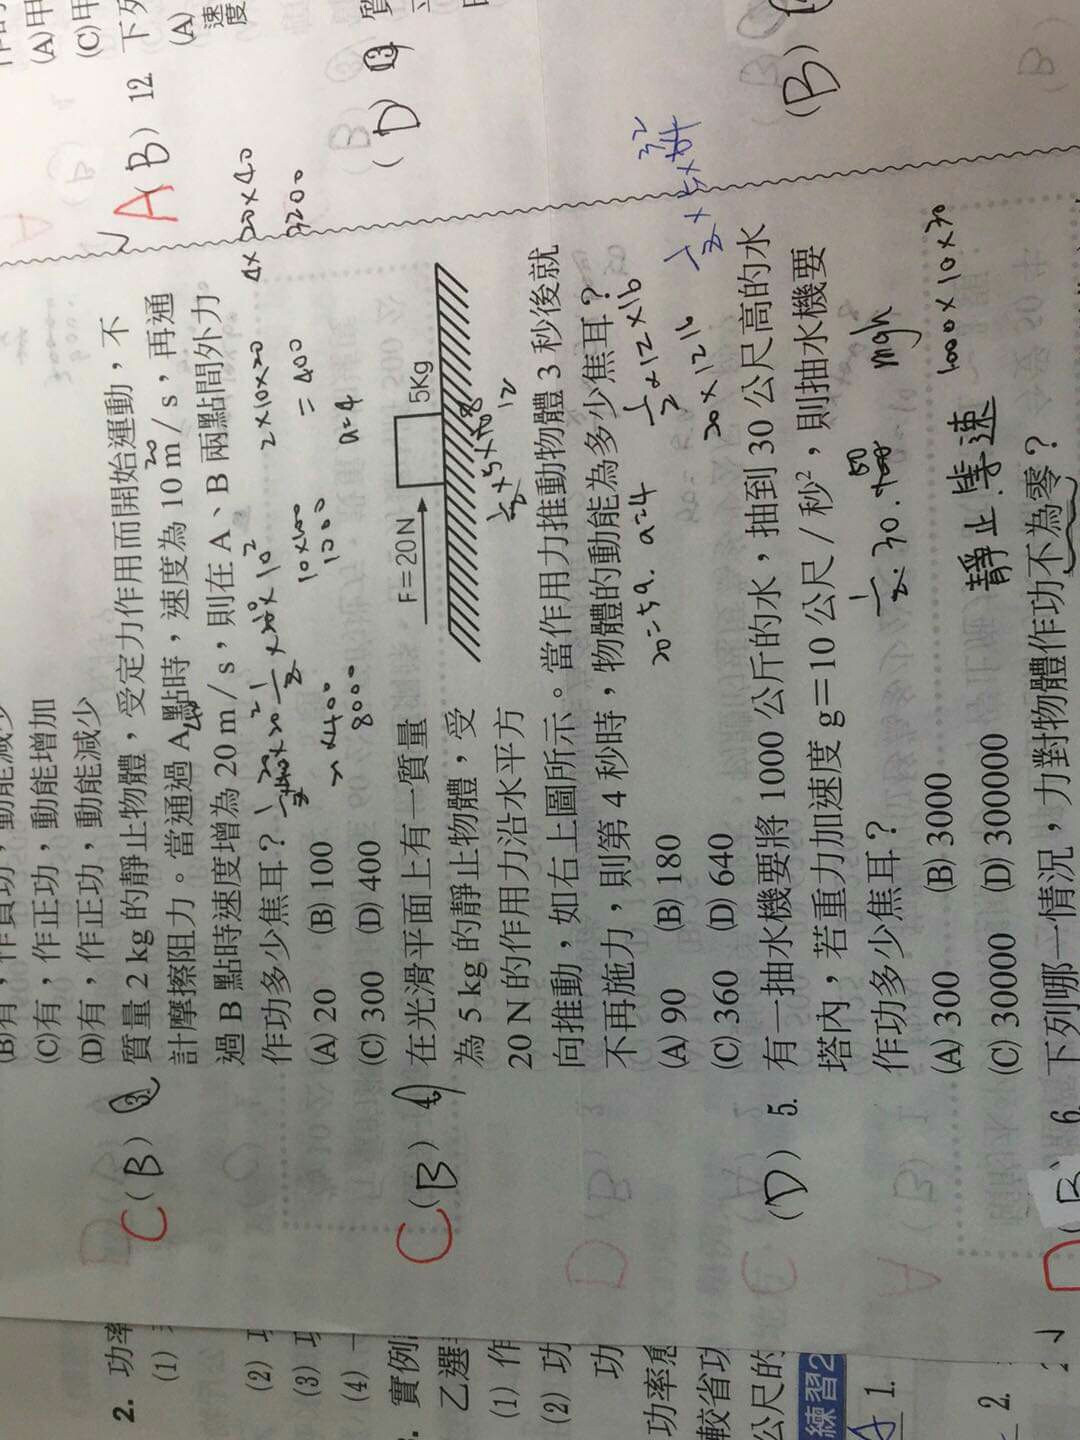 (B)有，作負功，動能減少
(C)有，作正功，動能增加
(D)有，作正功，動能減少
C (B) 3. 質量 2 kg 的靜止物體，受定力作用而開始運動，不
計摩擦阻力。當通過 A 點時，速度為 10 m / s，再通
過 B 點時速度增為 20 m / s，則在 A、B 兩點間外力
作功多少焦耳？
(A) 20 (B) 100
(C) 300 (D) 400
20
2×10×20
= 400
a=4
4× 20×40
3200
10×100
1000
8000
C (B) 4. 在光滑平面上有一質量
為 5 kg 的靜止物體，受
20 N 的作用力沿水平方
向推動，如右上圖所示。當作用力推動物體 3 秒後就
不再施力，則第 4 秒時，物體的動能為多少焦耳？
(A) 90 (B) 180
(C) 360 (D) 640
F＝20N
5Kg
12
20=5a. a=4
1/2 ×12×16
20×12 16
(D) 5. 有一抽水機要將 1000 公斤的水，抽到 30 公尺高的水
塔內，若重力加速度 g＝10 公尺 / 秒²，則抽水機要
作功多少焦耳？
(A) 300 (B) 3000
(C) 30000 (D) 300000
mgh
1000×10×30
靜止 等速
D (B) 6. 下列哪一情況，力對物體作功不為零？
A (B) 12 下列
(A)
速度
(D) 13
(B)
(A)甲
(C)甲
2. 功率
(1)
(2)
(3)
(4)
實例
乙選
(1) 作
(2) 功
功
功率
較省功
公尺的
練習2
1.
2.